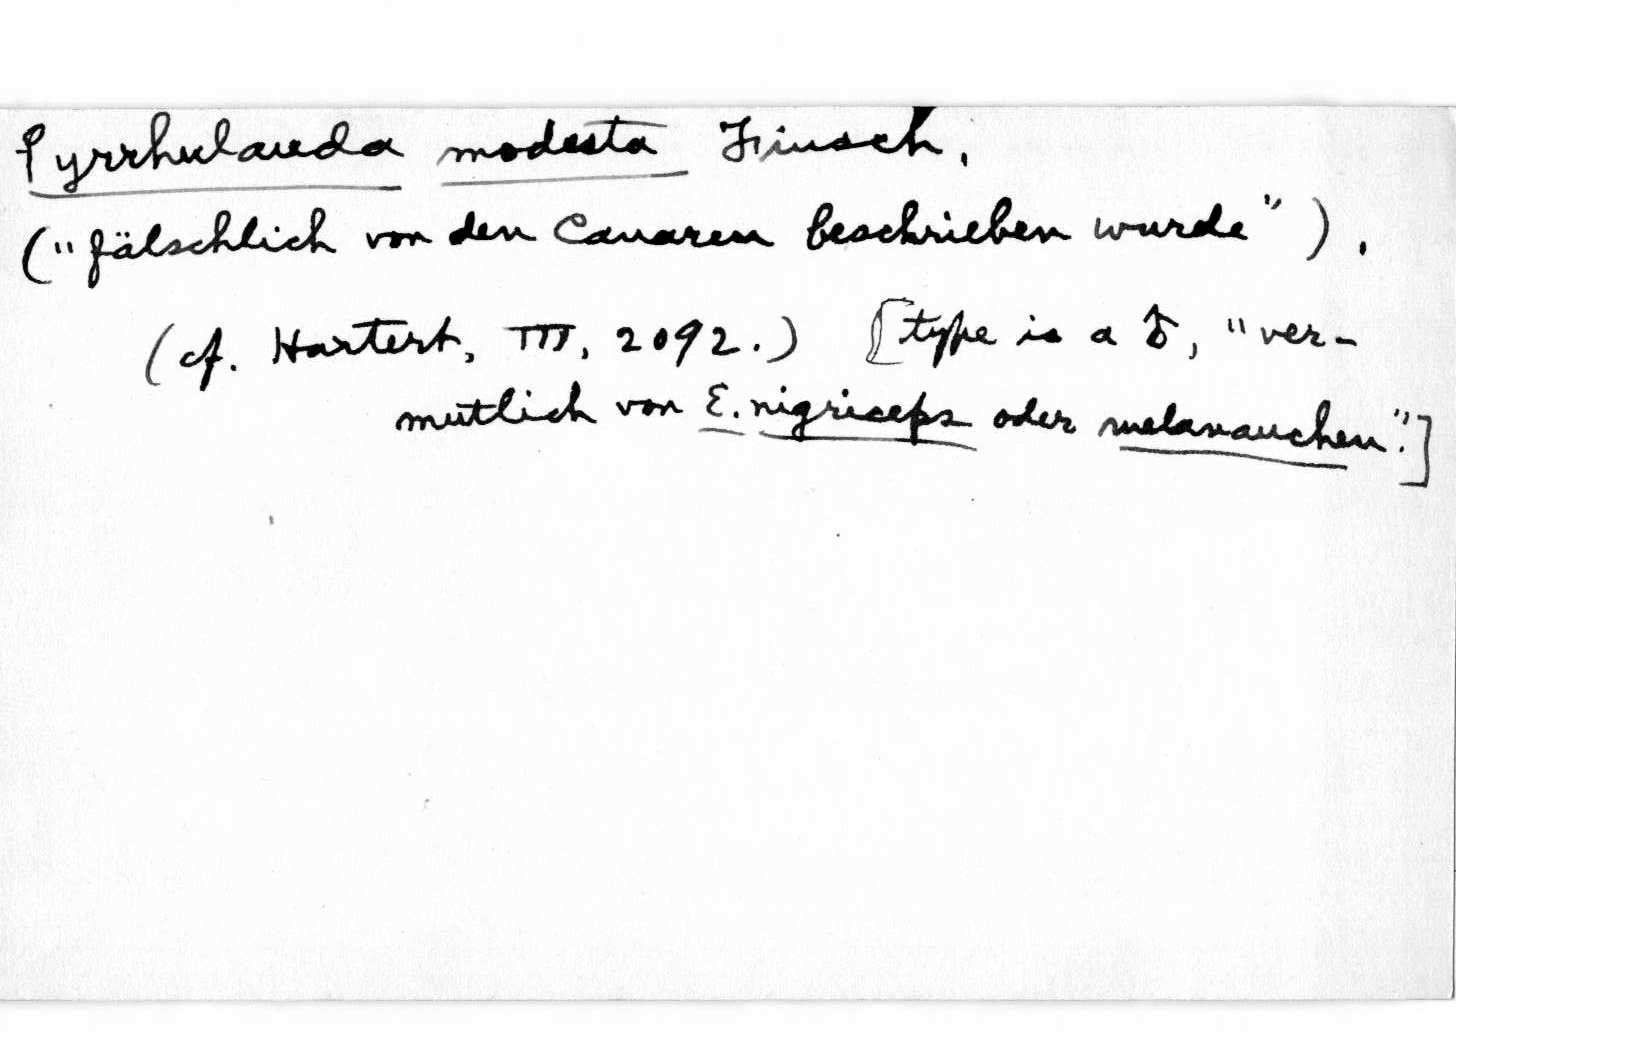 Pyrrhulauda modesta Finsch.
("fälschlich von den Canaren beschrieben wurde").
(cf. Hartert, III, 2092.) [type is a ♂, "ver-
mutlich von E. nigriceps oder melanauchen".]